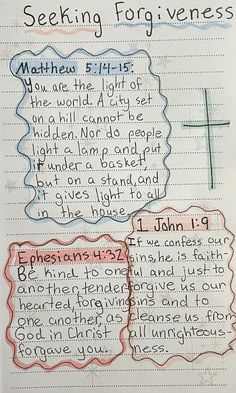 Seeking Forgiveness
Matthew 5:14-15:
You are the light of
the world. A city set
on a hill cannot be
hidden. Nor do people
light a lamp and put
it under a basket,
but on a stand, and
it gives light to all
in the house.
Ephesians 4:32
Be kind to one
another, tender
hearted, forgiving
one another, as
God in Christ
forgave you.
1 John 1:9
If we confess our
sins, he is faith-
ful and just to
forgive us our
sins and to
cleanse us from
all unrighteous-
ness.